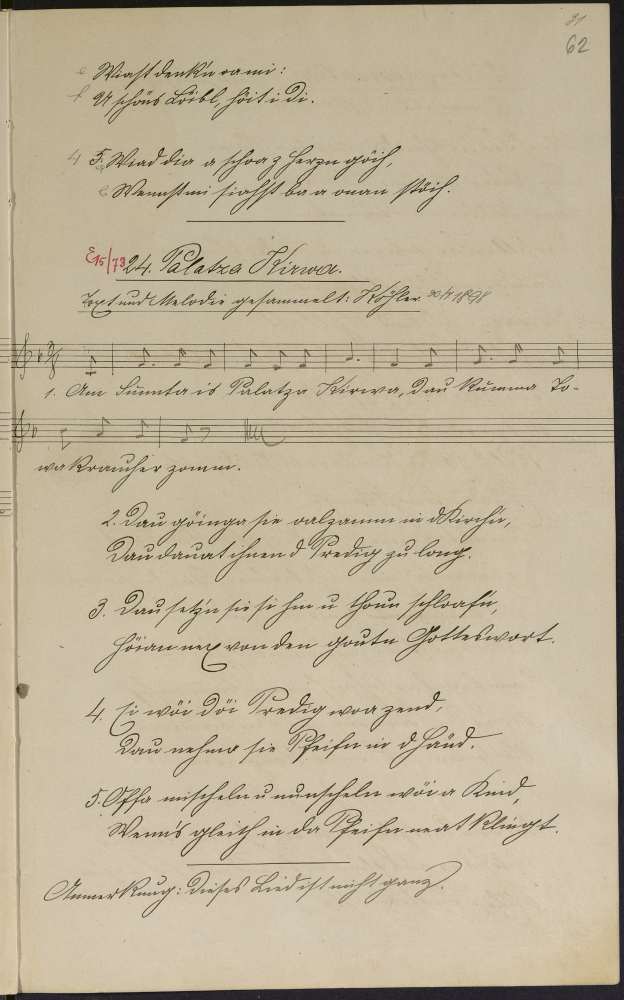 31
62
e Wiast denk'n va mi:
f A schöns Löibl, hoit i di.
4 5. Wiad dia a schora z Herzn göih,
e Wennst mi siahst ba a onan stöih.
E15/73 24. Palatza Kirwa.
Text und Melodie gesammelt: Köhler 1898
1. Am Sunnta is Palatza Kirwa, Dau kumma To-
wakraucher zamm.
2. Dau göinga sie oalzamm in d Kirch'n,
Dau dauat ihnen d Predig zu long.
3. Dau setz'n sie si hin u thoun schloaf'n,
Höian nex von den goutn Gotteswort.
4. Ei wöi döi Predig woa zend,
Dau nehma sie Pfeifn in d Händ.
5. Offa mischeln u nunscheln wöi a Kind,
Wenn's gleich in da Pfeifn neat klingt.
Anmerkung: Dieses Lied ist nicht ganz.